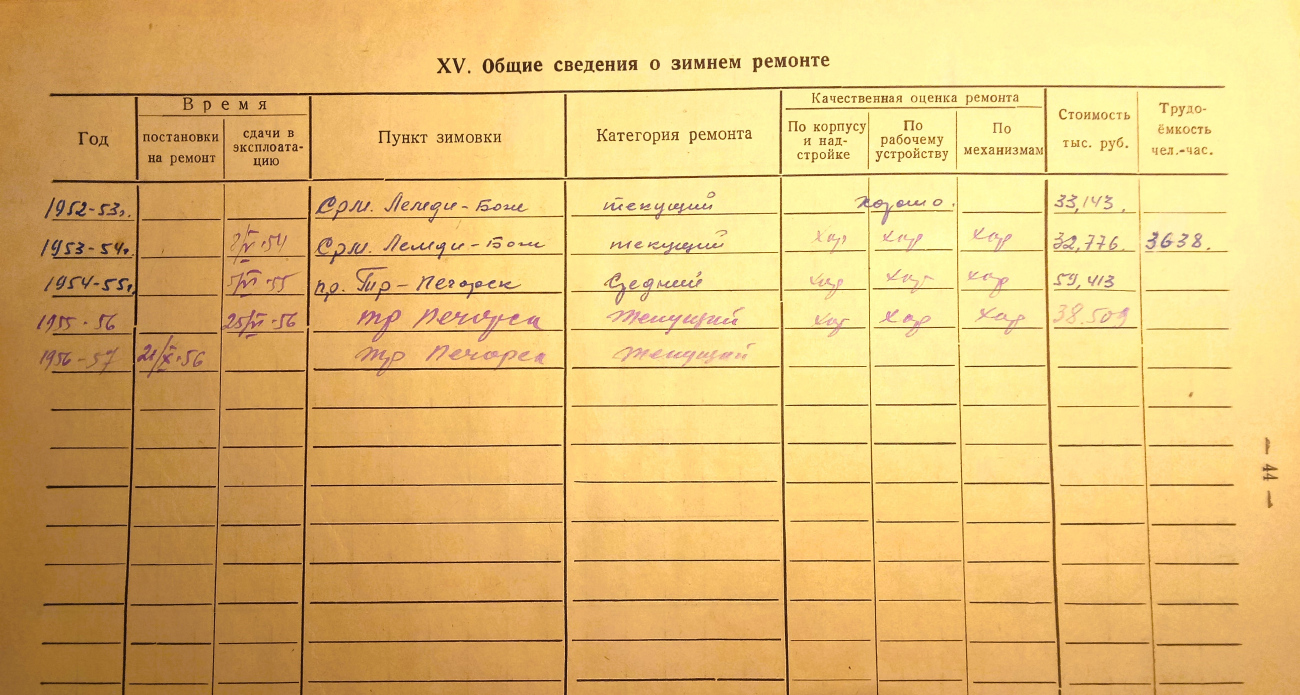 XV. Общие сведения о зимнем ремонте
Год
Время
постановки на ремонт
сдачи в эксплоата-цию
Пункт зимовки
Категория ремонта
Качественная оценка ремонта
По корпусу и над-стройке
По рабочему устройству
По механизмам
Стоимость тыс. руб.
Трудо-ёмкость чел.-час.
1952-53г. Срм. Лемди-Бож текущий хорошо. 33,143.
1953-54г. /V-54 Срм. Лемди-Бож текущий хор хор хор 32,776. 3638.
1954-55г. 5/VI-55 пр. Печорск Средний хор хор хор 59,413
1955-56 25/VI-56 Печорск Текущий хор хор хор 38.509
1956-57 /X-56 Печорск Текущий
— 44 —